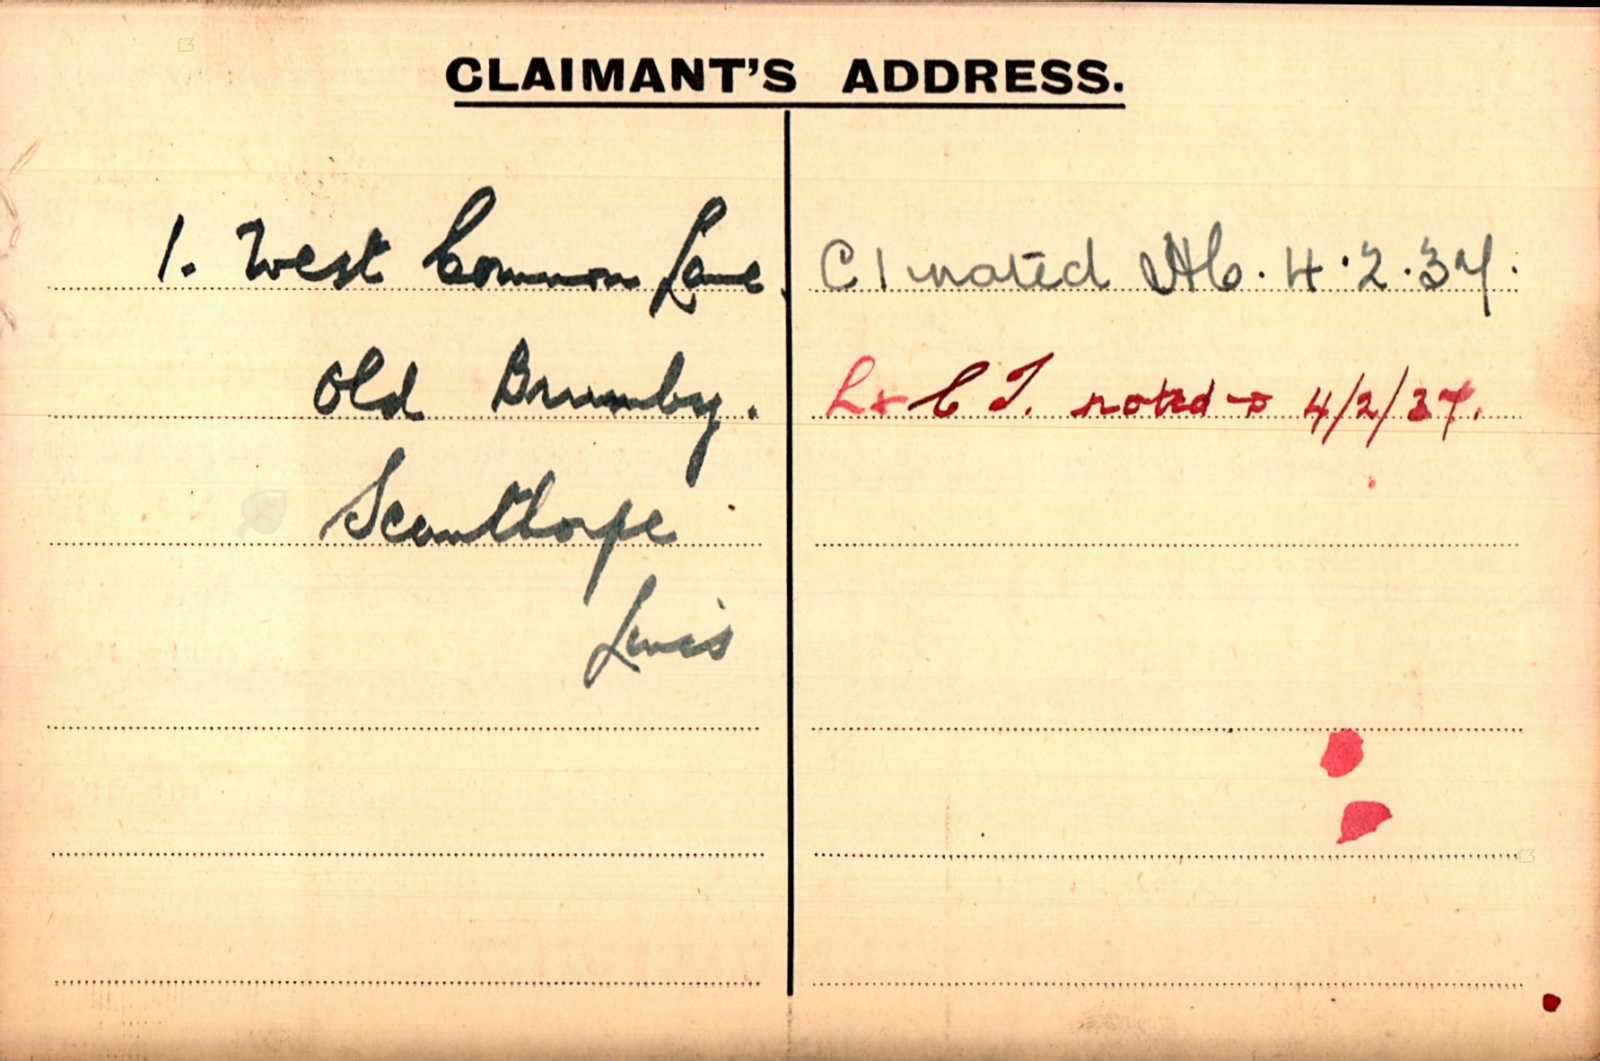 CLAIMANT'S ADDRESS.
1. West Common Lane
Old Brumby.
Scunthorpe
Lincs
C I noted 4.2.37.
L & C I. noted 4/2/37.